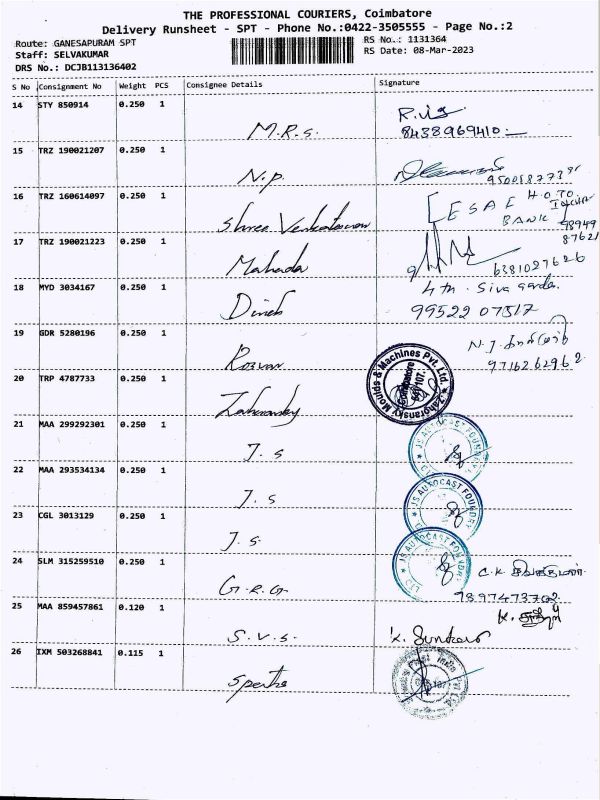 THE PROFESSIONAL COURIERS, Coimbatore
Delivery Runsheet - SPT - Phone No.:0422-3505555 - Page No.:2
Route: GANESAPURAM SPT
RS No.: 1131364
Staff: SELVAKUMAR
RS Date: 08-Mar-2023
DRS No.: DCJB113136402
S No Consignment No Weight PCS Consignee Details Signature
14 STY 850914 0.250 1
M.R.S. 8438969410
15 TRZ 190021207 0.250 1
N.P.
16 TRZ 160614097 0.250 1
Shree
[ESAF
BANK
98949
87621
17 TRZ 190021223 0.250 1
Mahada 6381027626
18 MYD 3034167 0.250 1
4th. Siva garden.
Dinesh 99522 07517
19 GDR 5280196 0.250 1
9716262962
20 TRP 4787733 0.250 1
Zahoransky Moulds & Machines Pvt. Ltd.
Coimbatore
641107.
Zahoransky
21 MAA 299292301 0.250 1
J.S JS AUTOCAST FOUNDRY
22 MAA 293534134 0.250 1
J.S JS AUTOCAST FOUNDRY
23 CGL 3013129 0.250 1
J.S. JS AUTOCAST FOUNDRY
24 SLM 315259510 0.250 1
G.R.G
25 MAA 859457861 0.120 1
S.V.S. K.
26 IXM 503268841 0.115 1